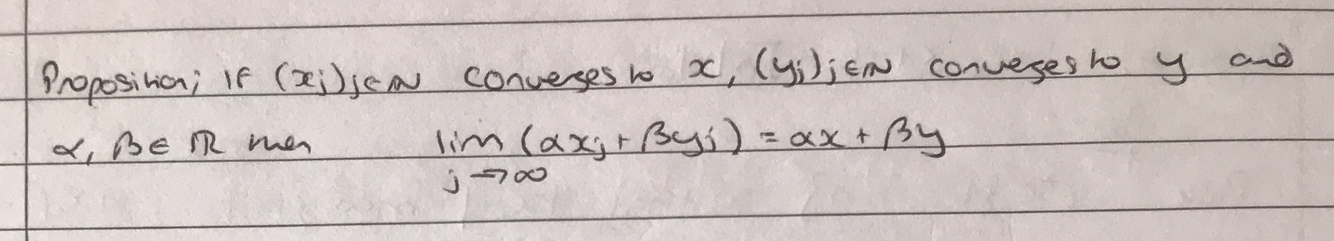 Proposition; If (xj)j∈ℕ converges to x, (yj)j∈ℕ converges to y and
α, β ∈ ℝ then lim (αxj + βyj) = αx + βy
j→∞